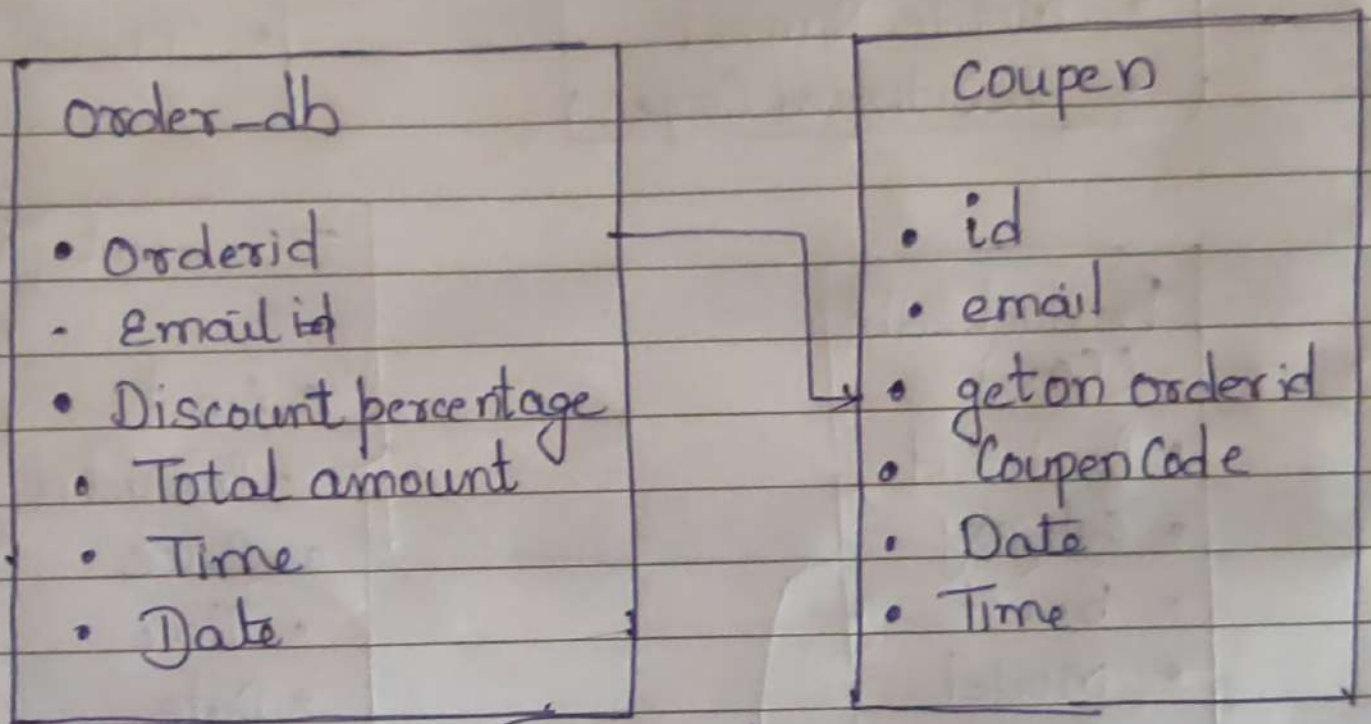 order_db
• Orderid
- Email id
• Discount percentage
• Total amount
• Time
• Date
Coupen
• id
• email
• geton orderid
• Coupen Code
• Date
• Time